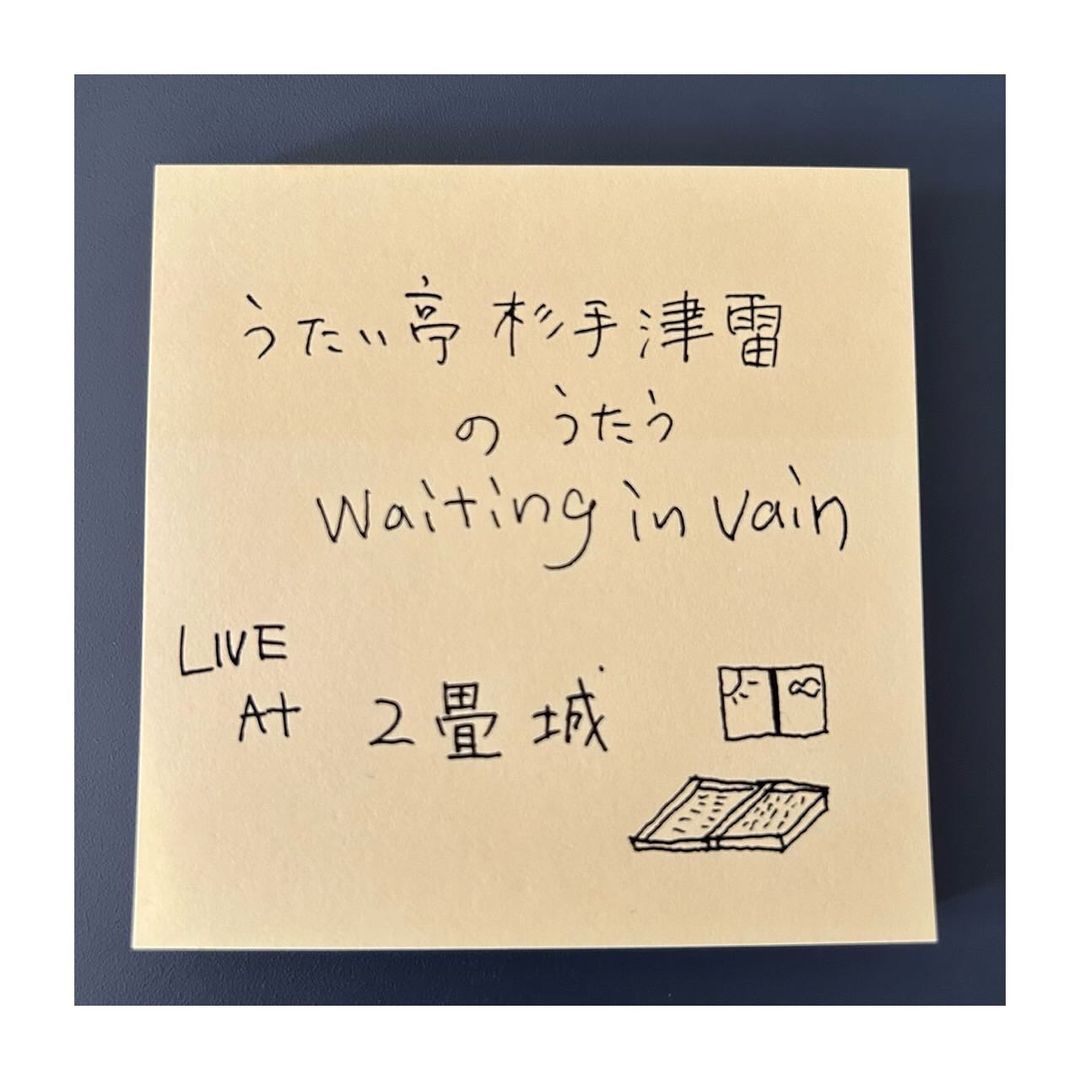 うたい亭 杉手津雷
の うたう
Waiting in Vain
LIVE
At 2畳城